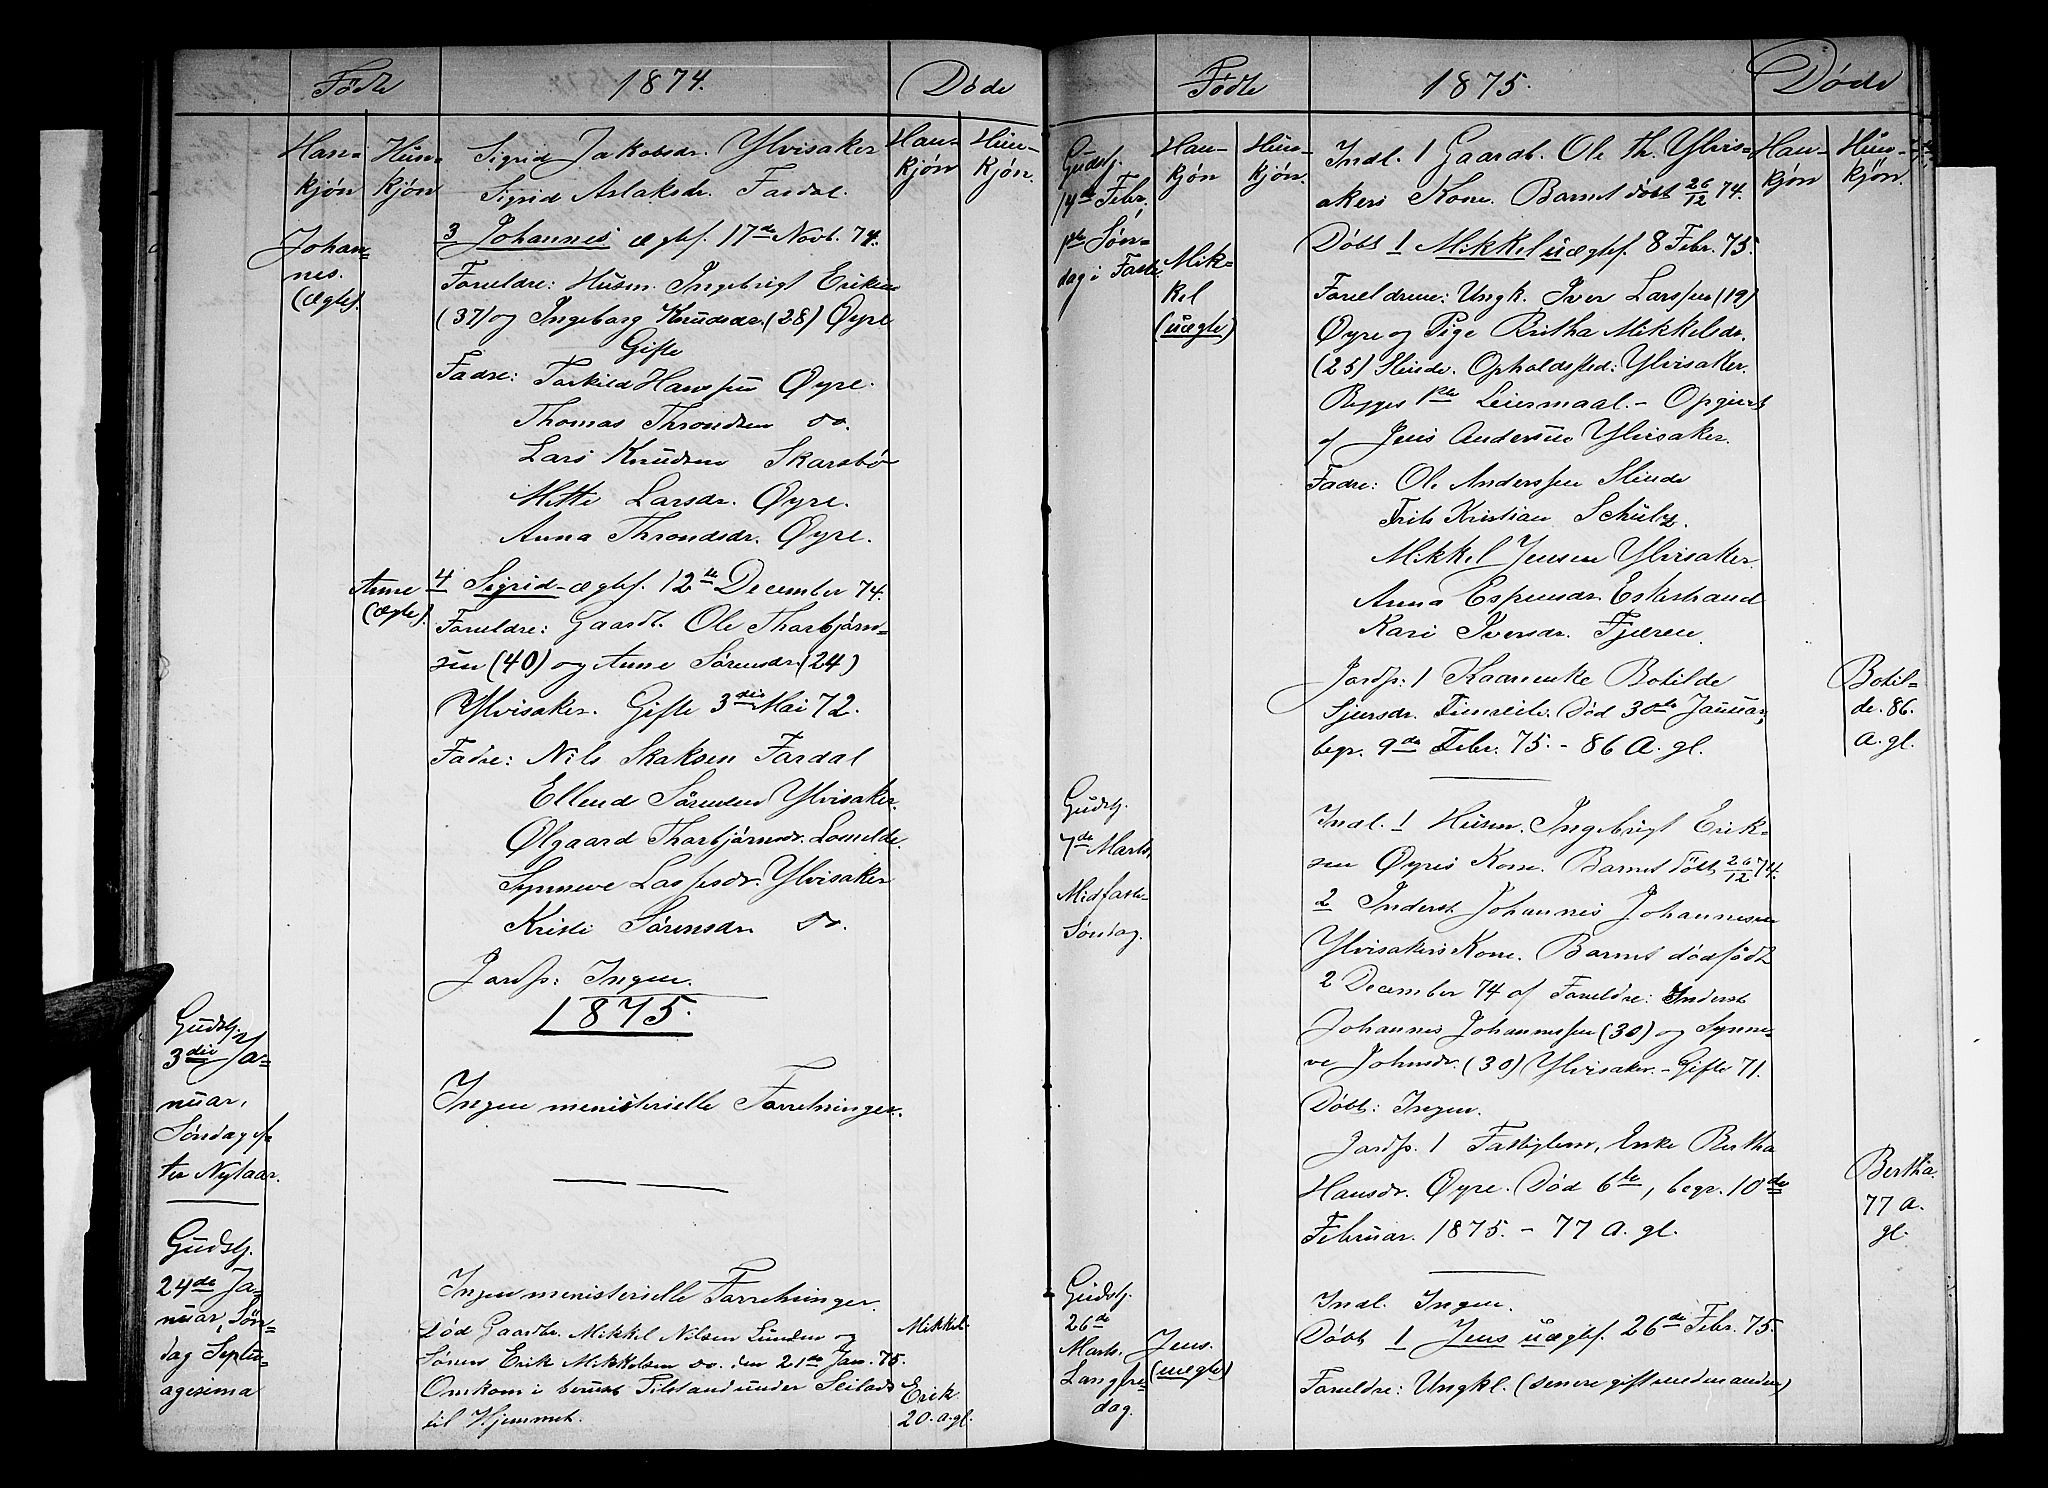 Fødte
1874.
Døde
Han-
kjøn
Hun-
kjøn
Sigrid Jakobsdr. Ylvisaker
Sigrid Aslaksdr. Fardal.
Han-
kjøn
Hun-
kjøn.
Johan-
nes.
(ægte).
3 Johannes ægtef. 17de Novb. 74.
Foreldre: Husm. Ingebrigt Eriksen
(37) og Ingeborg Knudsdr. (28) Øyre
Gifte
Fadre: Torkild Hansen Øyre.
Thomas Throndsen do.
Lars Knudsen Skarsbø
Mette Larsdr. Øyre.
Anna Throndsdr. Øyre.
Anne
(ægte).
4 Sigrid ægtef. 12te December 74.
Foreldre: Gaardb. Ole Thorbjørn-
sen (40) og Anne Sørensdr. (24)
Ylvisaker. Gifte 3die Mai 72.
Fadre: Nils Skaksen Fardal
Ellend Sørensen Ylvisaker.
Ølgaard Thorbjørnsdr. Lomelde.
Synneve Lassesdr. Ylvisaker
Kristi Sørensdr do.
Jordf: Ingen.
1875.
Gudstj.
3die Ja-
nuar,
Søndag ef-
ter Nytaar.
Ingen menisterielle Forretninger.
Gudstj.
24de Ja-
nuar, Søn-
dag Septu-
agesima
Ingen menisterielle Forretninger.
Død Gaardbr. Mikkel Nilsen Lunden og
Sønens Erik Mikkelsen do. den 21de Jan. 75.
Omkom i beruset Tilstand under Seilads
til Hjemmet.
Mikkel
Erik
20. a. gl.
Fødte
1875.
Døde
Gudstj.
14de Febr,
1ste Søn-
dag i Faste
Han-
kjøn
Hun-
kjøn.
Indl. 1 Gaardb. Ole Th. Ylvis-
akers Kone. Barnet døbt 26/12 74.
Han-
kjøn
Hun-
kjøn.
Mik-
kel
(uægte)
Døbt 1 Mikkel uægtef. 8 Febr. 75.
Foreldrene: Ungk. Iver Larssen (19)
Øyre og Pige Britha Mikkelsdr.
(25) Slinde. Opholdsted: Ylvisaker.
Begges 1ste Leiermaal. – Opgivet
af Jens Andersen Ylvisaker.
Fadre: Ole Anderssen Slinde
Frits Kristian Schulz.
Mikkel Jensen Ylvisaker.
Anna Espensdr. Eskestrand
Kari Iversdr. Fjæren.
Jordf: 1 Kaarenke Botilde
Sjursdr. Timreite. Død 30de Januar,
begr. 9de Febr. 75. – 86 A. gl.
Botil-
de. 86.
A. gl.
Gudstj.
7de Marts,
Midfaste-
Søndag.
Indl. 1 Husm. Ingebrigt Erik-
sen Øyres Kone. Barnet døbt 26/12 74.
2 Inderst Johannes Johannesen
Ylvisakers Kone. Barnet dødfødt
2 December 74 af Foreldre: Inderst
Johannes Johannessen (30) og Synne-
ve Johnsdr. (30) Ylvisaker. – Gifte 71.
Døbt: Ingen.
Jordf. 1 Fattiglem, Enke Bertha
Hansdr. Øyre. Død 6te, begr. 10de
Februar. 1875. – 77 A. gl.
Bertha.
77 A.
gl.
Gudstj.
26de
Marts,
Langfre-
dag.
Jens.
(uægte)
Indl. Ingen.
Døbt 1 Jens uægtef. 26de Febr. 75.
Foreldre: Ungkl. (senere gift med en anden)